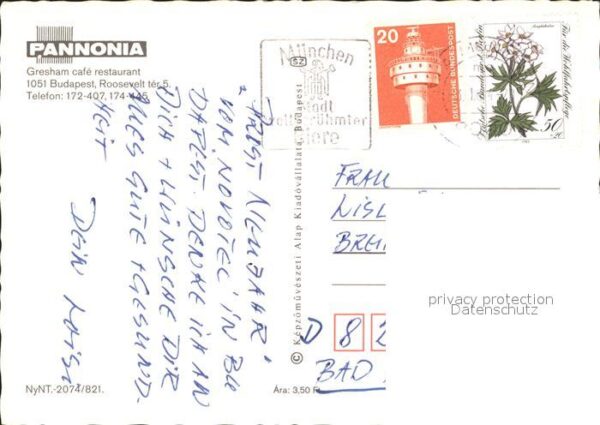 PANNONIA
Gresham café restaurant
1051 Budapest, Roosevelt tér 5.
Telefon: 172-407, 174-445
"PROST NEUJAHR"
VOM NOVOTEL IN BU
DAPEST. DENKE ICH AN
DICH + WÜNSCHE DIR
ALLES GUTE + GESUND-
HEIT
DEIN
NyNT.-2074/821.
© Képzőművészeti Alap Kiadóvállalata, Budapest
Ára: 3,50 Ft
München
SZ
Stadt
weltberühmter
Biere
20
DEUTSCHE BUNDESPOST
Für die Wohlfahrtspflege
50
FRAU
BRE
D 8 2
BAD
privacy protection
Datenschutz